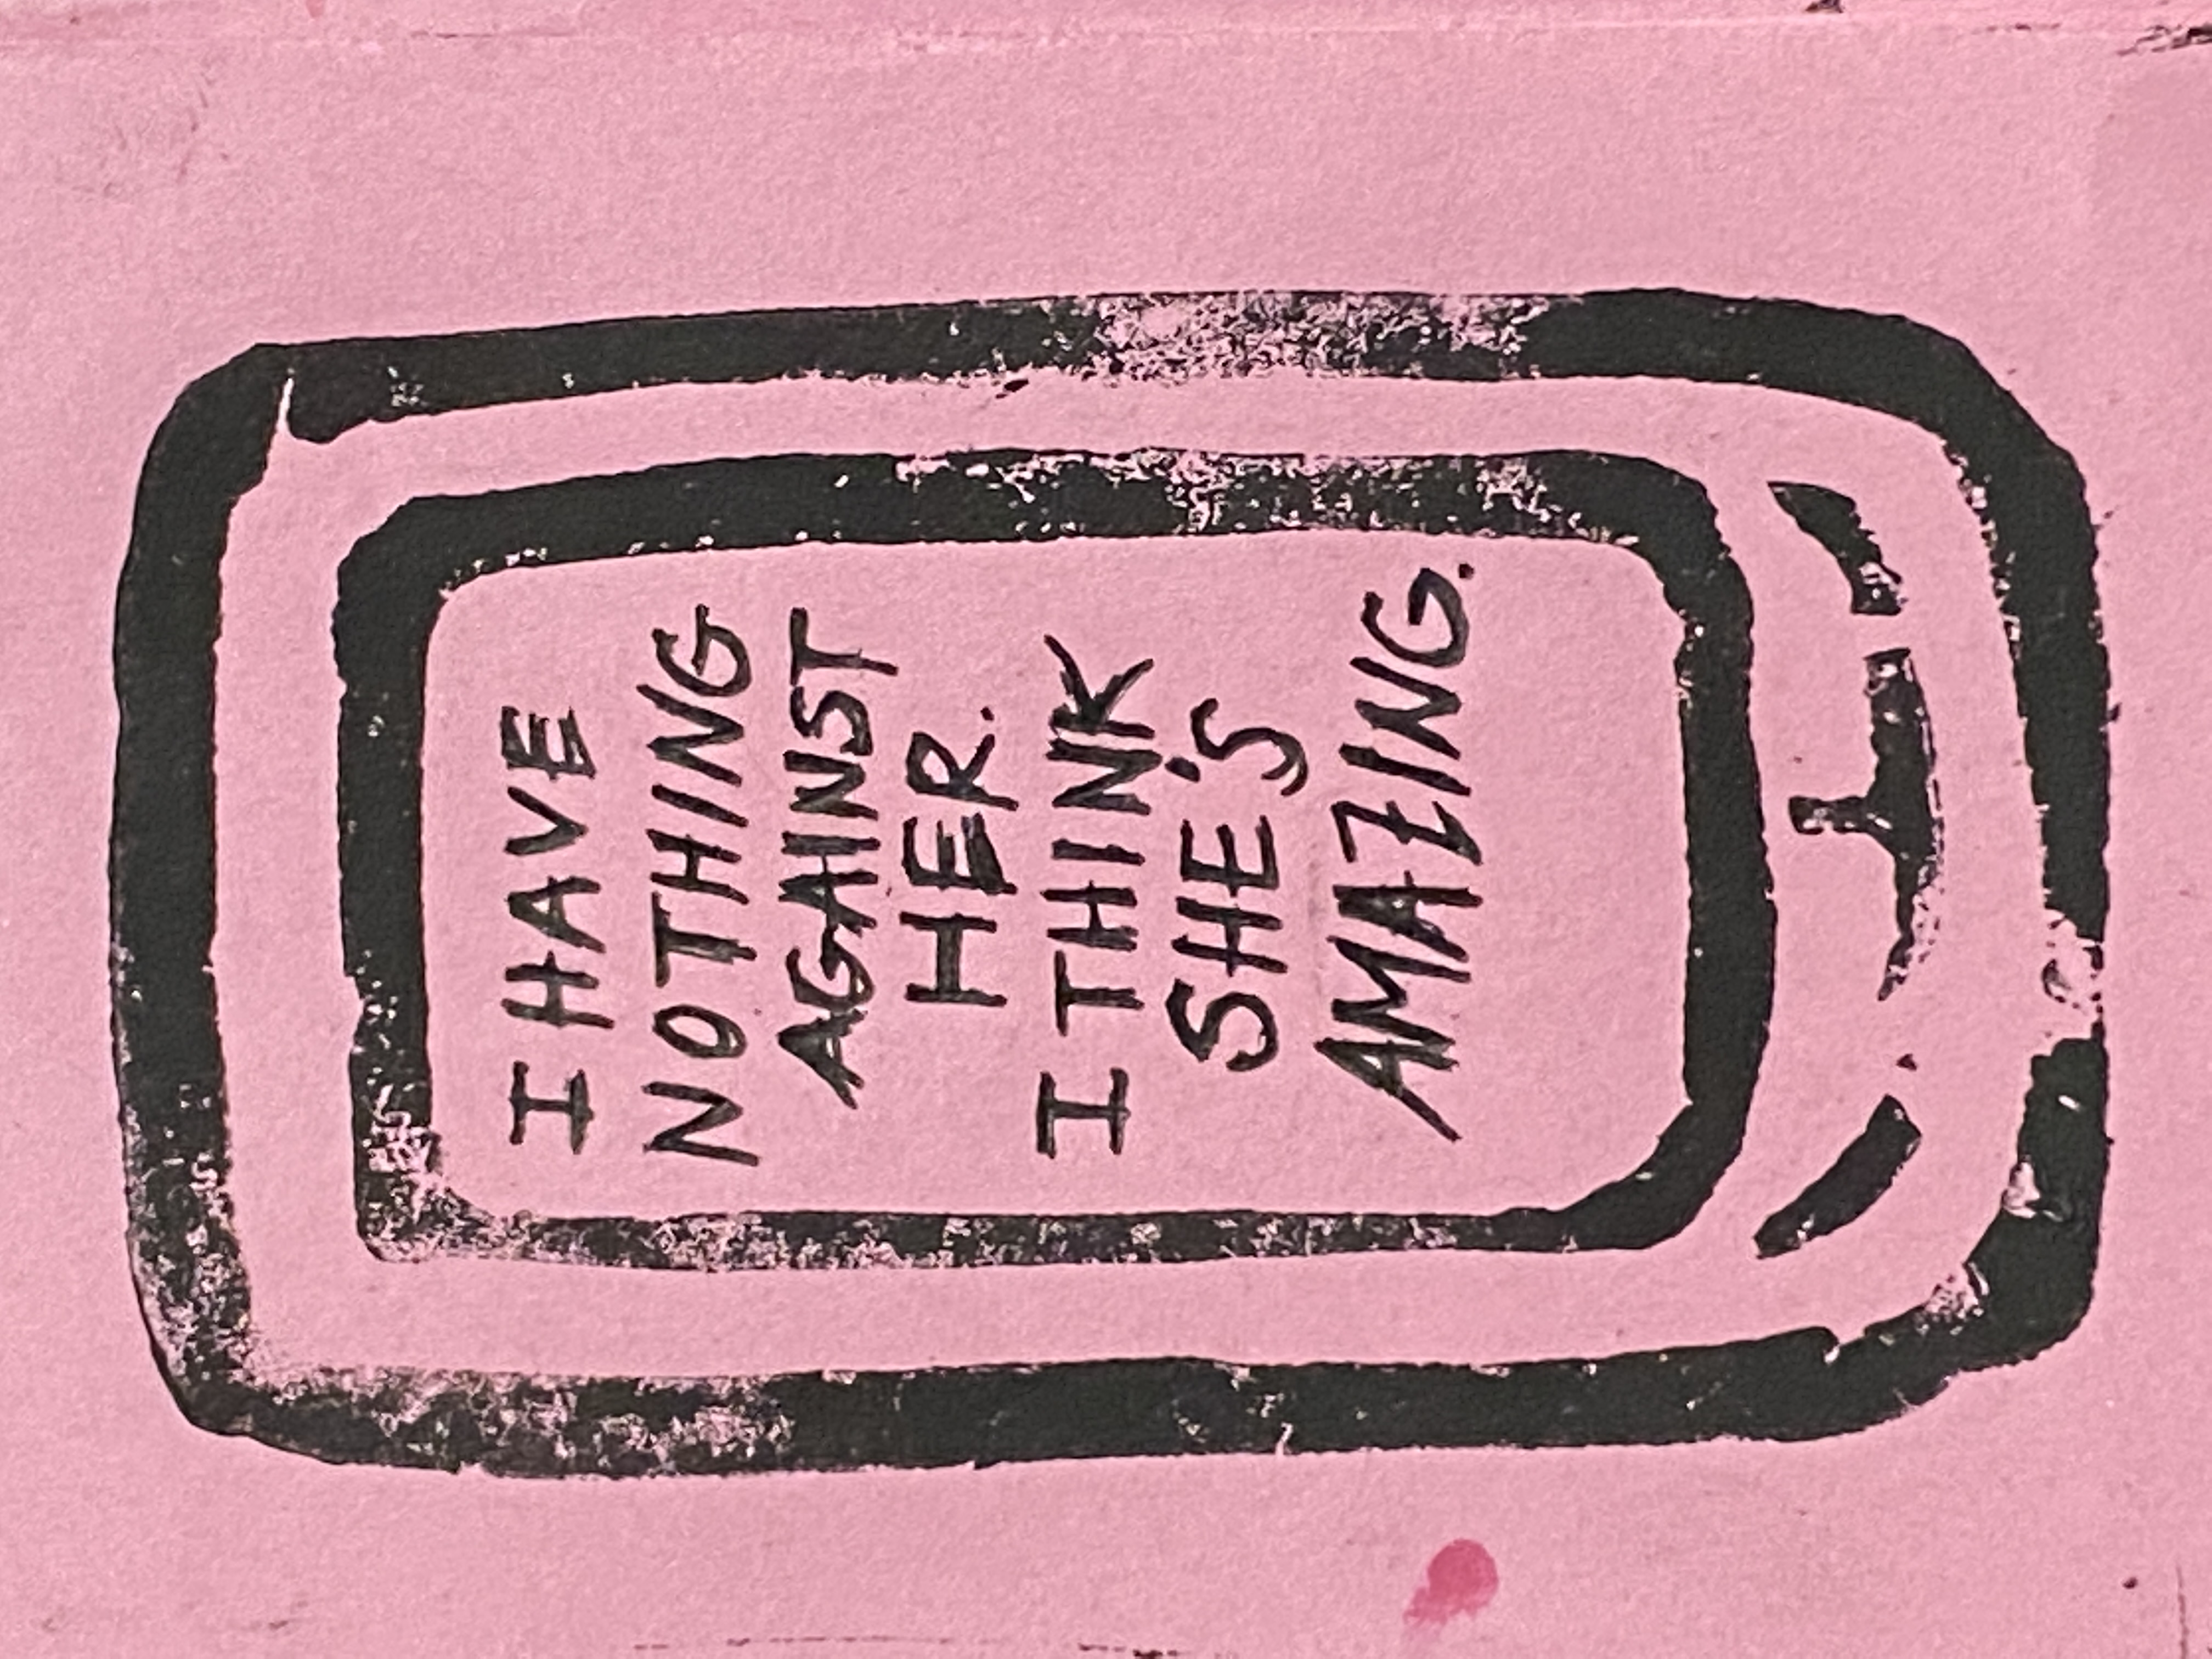 I HAVE
NOTHING
AGAINST
HER.
I THINK
SHE'S
AMAZING.